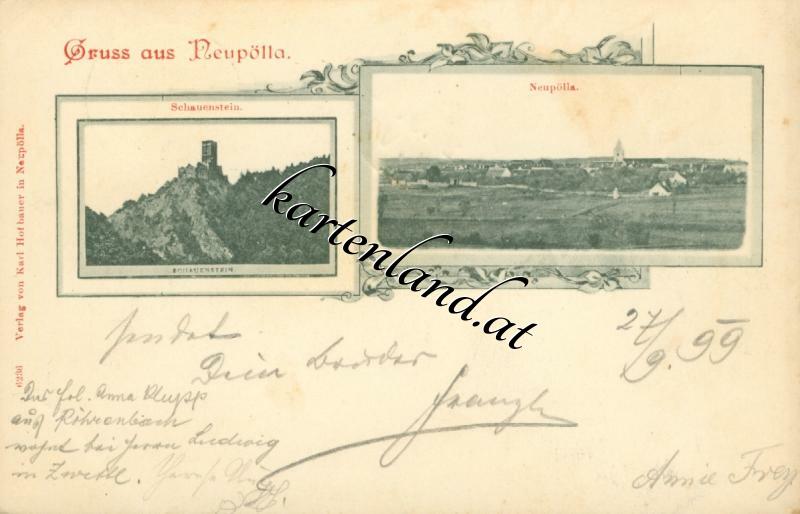 Gruss aus Neupölla.
Schauenstein.
Neupölla.
SCHAUENSTEIN.
Verlag von Karl Hofbauer in Neupölla.
6236
kartenland.at
27/9. 99
sendet
Dein Bruder
Franzl
Das Frl. Anna Klupp
aus Röhrenbach
wohnt bei Herrn Ludwig
in Zwettl.
Annie Frey